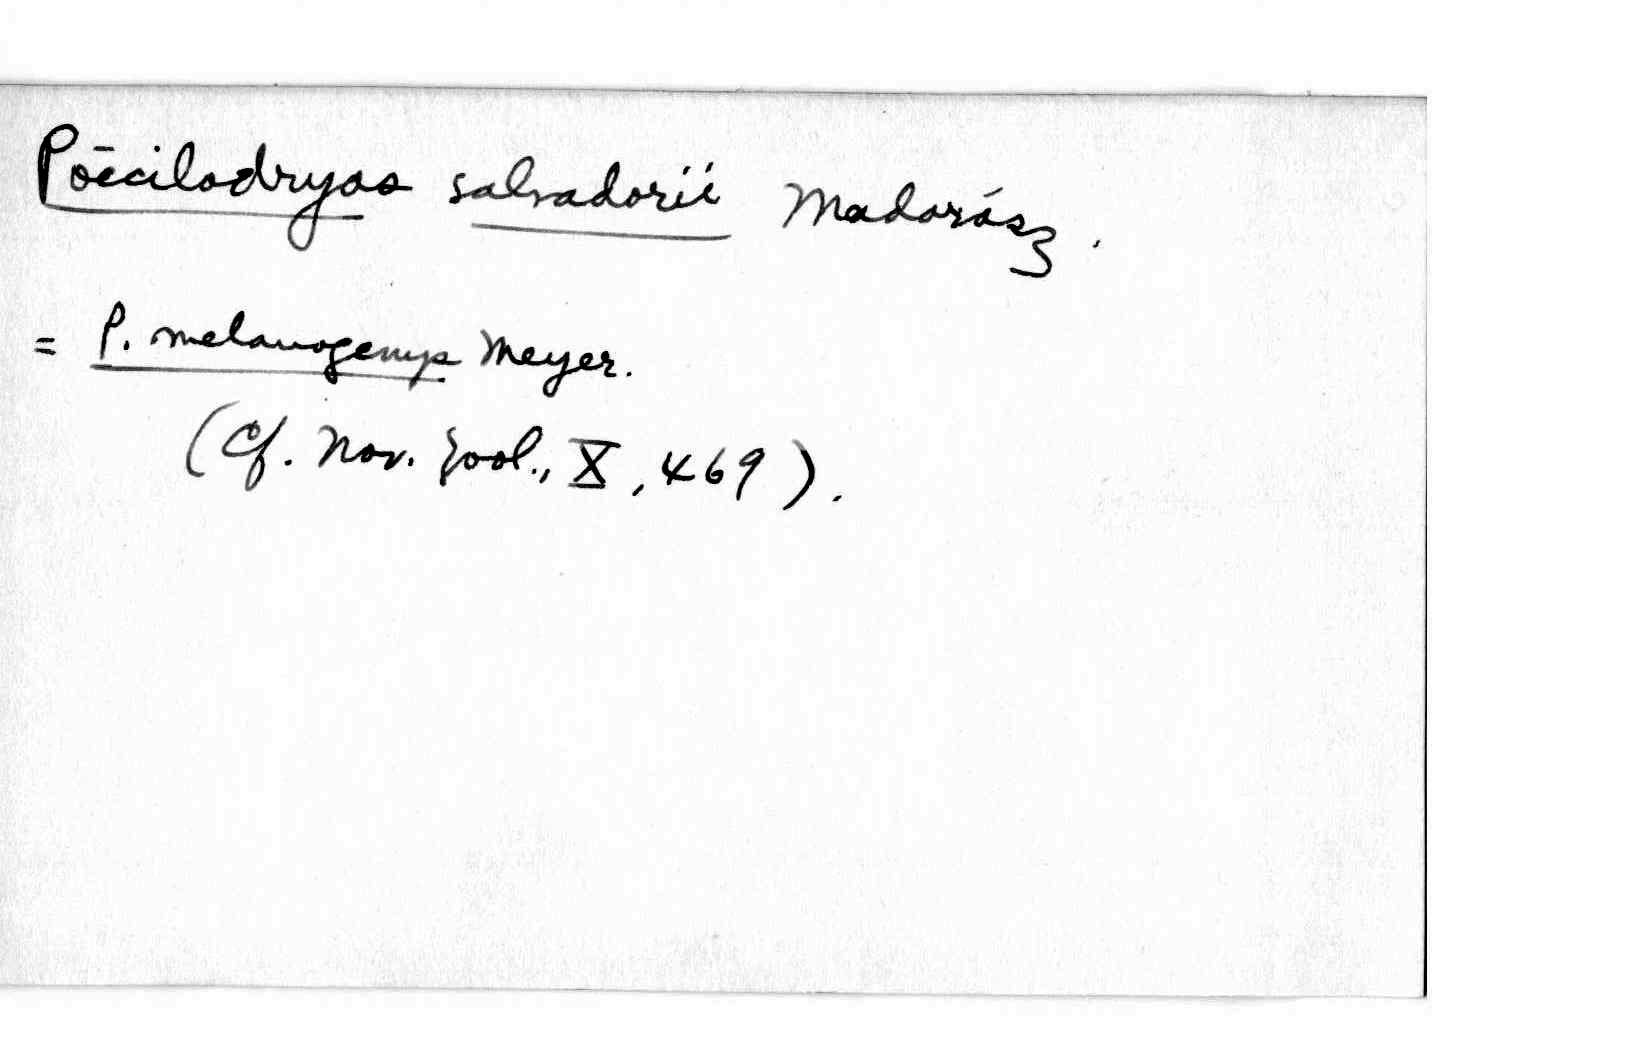 Poēcilodryas salvadorii Madarász.
= P. melanogenys Meyer.
(Cf. Nov. Zool., X, 469).